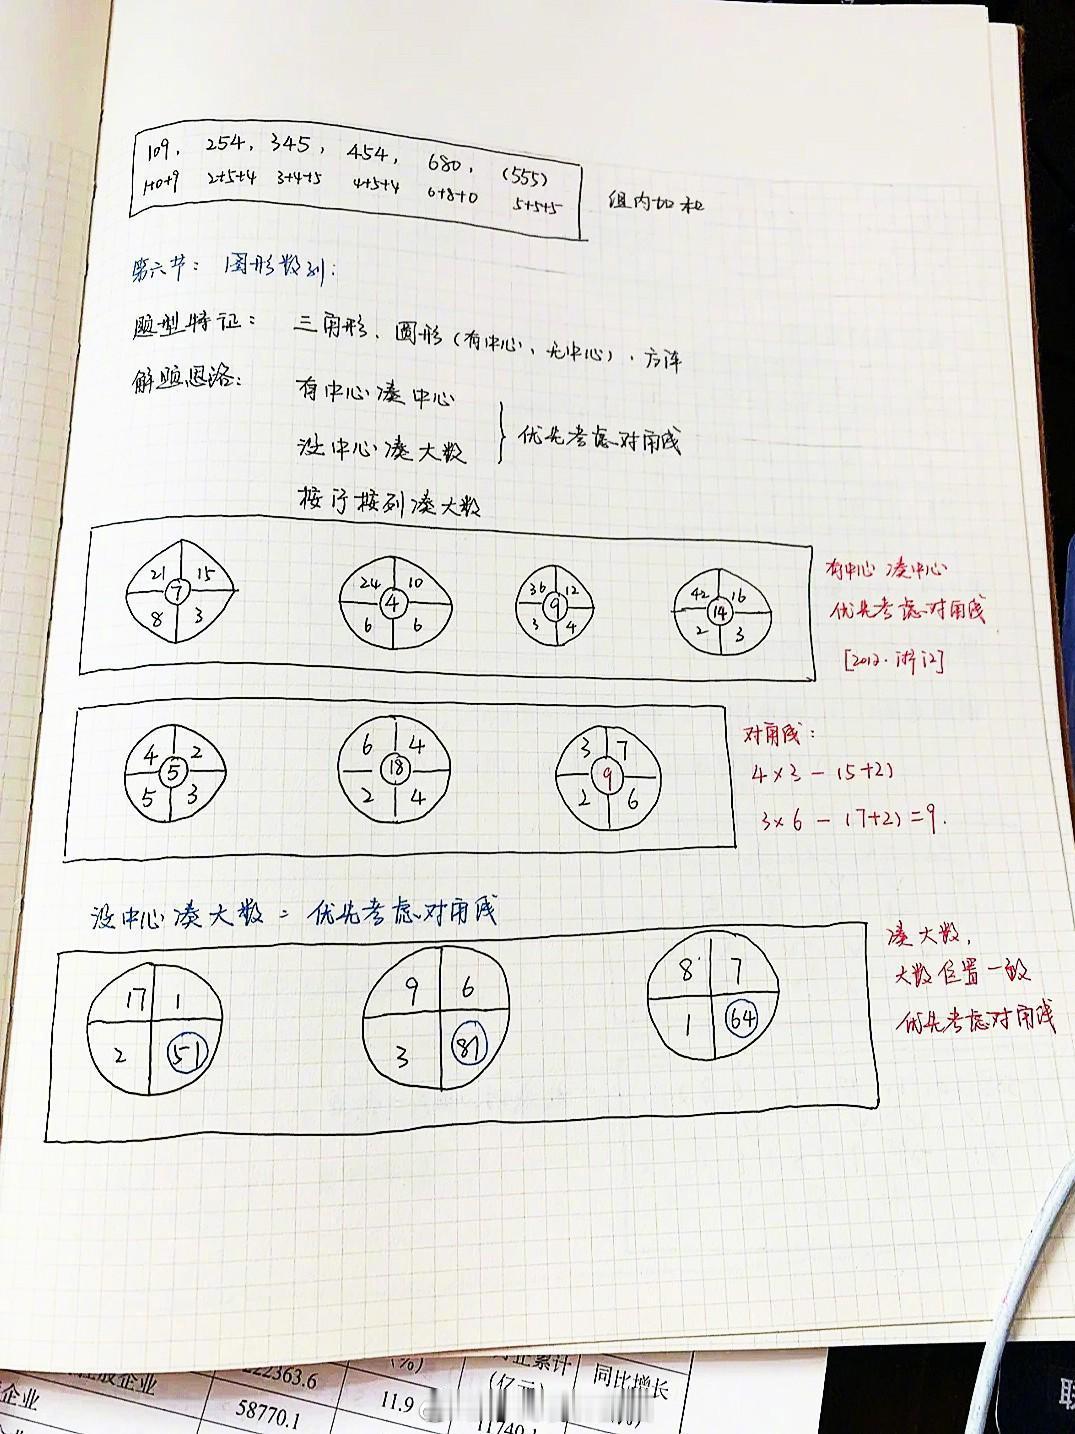 109, 254, 345, 454, 680, (555)
1+0+9 2+5+4 3+4+5 4+5+4 6+8+0 5+5+5
组内加和
第六节: 图形数列:
题型特征: 三角形、圆形(有中心、无中心)、方阵
解题思路: 有中心凑中心
没中心凑大数
优先考虑对角线
按行按列凑大数
21 15
7
8 3
24 10
4
6 6
36 12
9
3 4
42 16
14
2 3
有中心凑中心
优先考虑对角线
[2012·浙江]
4 2
5
5 3
6 4
18
2 4
3 7
9
2 6
对角线:
4×3-(5+2)
3×6-(7+2)=9.
没中心凑大数: 优先考虑对角线
17 1
2 51
9 6
3 81
8 7
1 64
凑大数,
大数位置一般
优先考虑对角线
企业
222363.6
(%)
企业累计
同比增长
企业
58770.1
11.9
(亿元)
11740.1